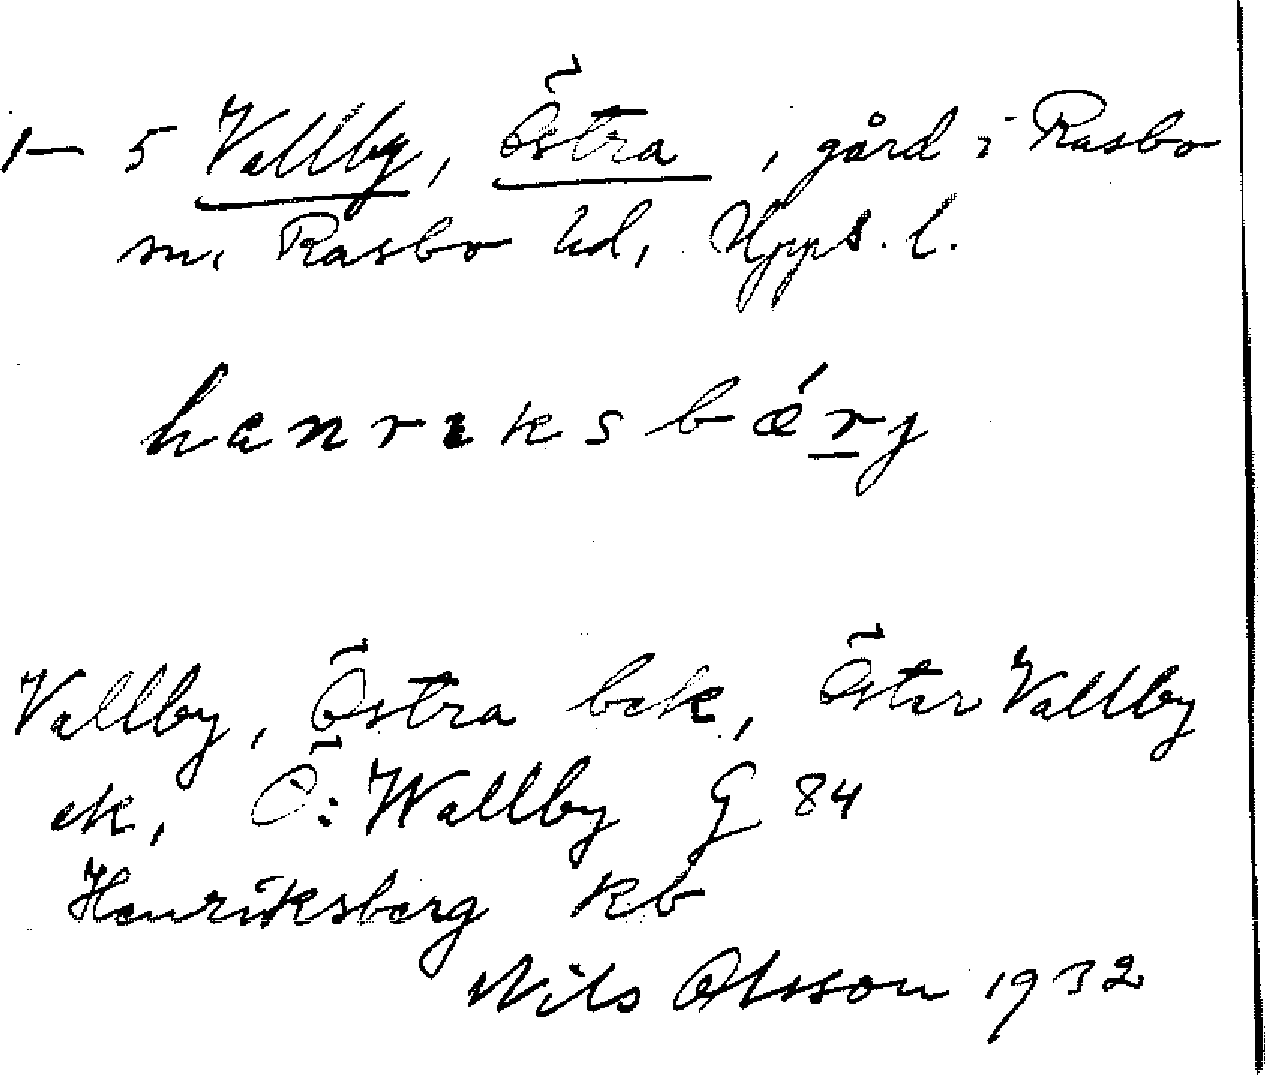 1–5 Vallby, Östra, gård i Rasbo
sn, Rasbo hd, Upps. l.
henrıksbǽrj
Vallby, Östra bek, Öster Vallby
ek, Ö: Wallby G 84
Henriksberg kb
Nils Olsson 1932